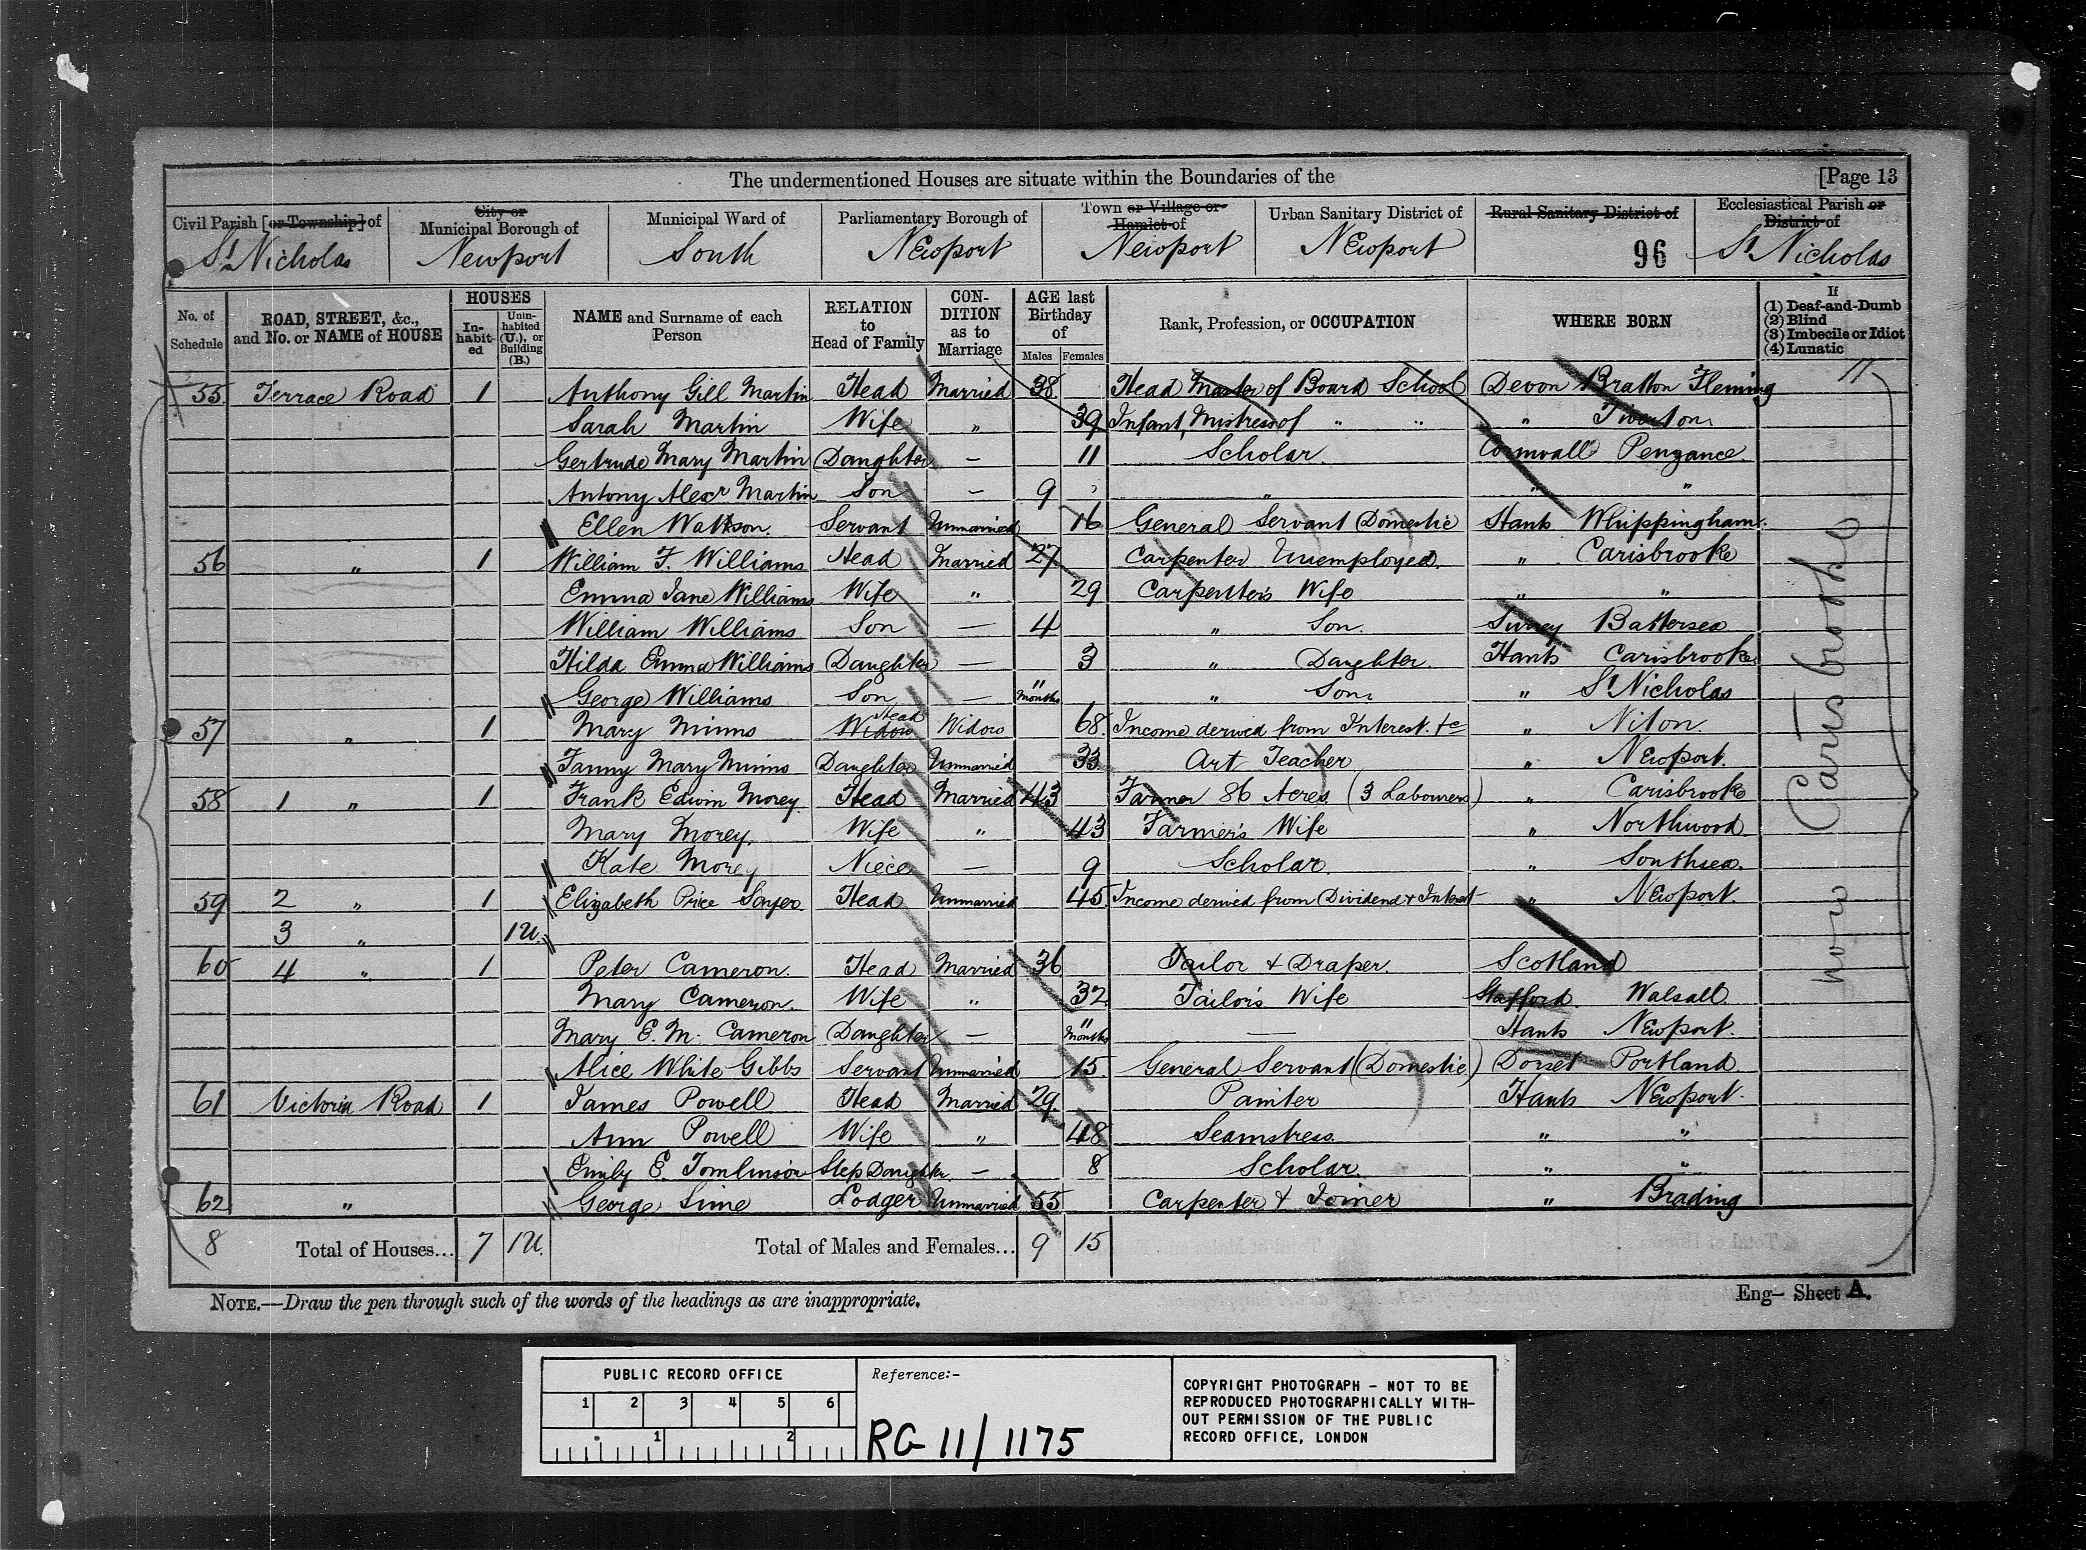 The undermentioned Houses are situate within the Boundaries of the [Page 13
Civil Parish [or Township] of St Nicholas
City or Municipal Borough of Newport
Municipal Ward of South
Parliamentary Borough of Newport
Town or Village or Hamlet of Newport
Urban Sanitary District of Newport
Rural Sanitary District of 96
Ecclesiastical Parish or District of St Nicholas
No. of Schedule
ROAD, STREET, &c., and No. or NAME of HOUSE
HOUSES
In-habit-ed
Unin-habited (U.), or Building (B.)
NAME and Surname of each Person
RELATION to Head of Family
CON-DITION as to Marriage
AGE last Birthday of
Males Females
Rank, Profession, or OCCUPATION
WHERE BORN
If
(1) Deaf-and-Dumb
(2) Blind
(3) Imbecile or Idiot
(4) Lunatic
55 Terrace Road 1 Anthony Gill Martin Head Married 38 Head Master of Board School Devon Bratton Fleming 11
Sarah Martin Wife " 39 Infant Mistress of " " " Tiverton
Gertrude Mary Martin Daughter — 11 Scholar Cornwall Penzance
Antony Alexr Martin Son — 9 " " "
Ellen Wattson Servant Unmarried 16 General Servant (Domestic) Hants Whippingham
56 " 1 William F. Williams Head Married 27 Carpenter Unemployed. " Carisbrooke
Emma Jane Williams Wife " 29 Carpenter's Wife " "
William Williams Son — 4 " Son. Surrey Battersea
Hilda Emma Williams Daughter — 3 " Daughter. Hants Carisbrooke
George Williams Son — 11 months " Son " St Nicholas
57 " 1 Mary Minns Widow Head Widow 68 Income derived from Interest &c " Niton.
Fanny Mary Minns Daughter Unmarried 33 Art Teacher " Newport.
58 1 " 1 Frank Edwin Morey Head Married 43 Farmer 86 Acres (3 Labourers) " Carisbrooke
Mary Morey. Wife " 43 Farmer's Wife " Northwood
Kate Morey Niece — 9 Scholar. " Southsea.
59 2 " 1 Elizabeth Price Head Unmarried 45 Income derived from Dividend & Interest " Newport.
3 " 1U.
60 4 " 1 Peter Cameron. Head Married 36 Tailor & Draper. Scotland
Mary Cameron. Wife " 32 Tailor's Wife Stafford Walsall.
Mary E. M. Cameron Daughter — 11 months — Hants Newport.
Alice White Gibbs Servant Unmarried 15 General Servant (Domestic) Dorset Portland
61 Victoria Road 1 James Powell Head Married 29 Painter Hants Newport.
Ann Powell Wife " 48 Seamstress. " "
Emily E. Tomlinson Step Daughter — 8 Scholar. " "
62 " George Sime Lodger Unmarried 55 Carpenter & Joiner " Brading
8 Total of Houses... 7 1U. Total of Males and Females... 9 15
now Carisbrooke
NOTE.—Draw the pen through such of the words of the headings as are inappropriate.
Eng— Sheet A.
PUBLIC RECORD OFFICE
1 2 3 4 5 6
1 2
Reference:-
RG 11/1175
COPYRIGHT PHOTOGRAPH - NOT TO BE
REPRODUCED PHOTOGRAPHICALLY WITH-
OUT PERMISSION OF THE PUBLIC
RECORD OFFICE, LONDON